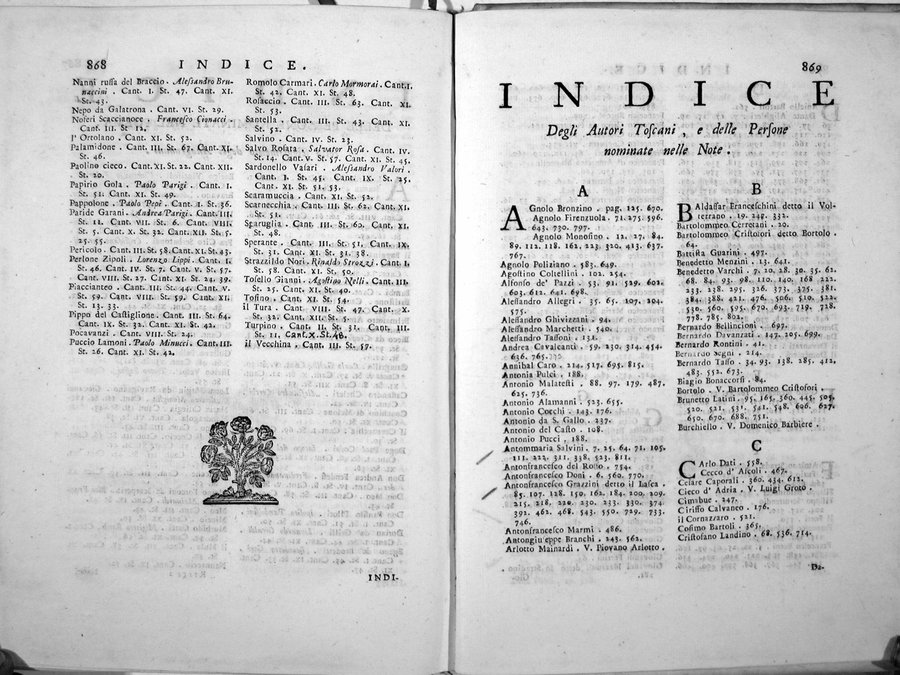 868 INDICE.
Nanni russa del Braccio. Alessandro Bru-
naccini. Cant. I. St. 47. Cant. XI.
St. 43.
Nepo da Galatrona. Cant. VI. St. 29.
Noferi Scaccianoce. Francesco Cionacci.
Cant. III. St 12.
L'Ortolano. Cant. XI. St. 52.
Palamidone. Cant. III. St. 67. Cant. XI.
St. 46.
Paolino cieco. Cant. XI. St. 22. Cant. XII.
St. 20.
Papirio Gola. Paolo Parigi. Cant. I.
St. 51. Cant. XI. St. 49.
Pappolone. Paolo Pepi. Cant. I. St. 36.
Paride Garani. Andrea Parigi. Cant. III.
St. 12. Cant. VII. St. 6. Cant. VIII.
St. 5. Cant. X. St. 32. Cant. XII. St. 5.
25. 55.
Pericolo. Cant. III. St. 58. Cant. XI. St. 43.
Perlone Zipoli. Lorenzo Lippi. Cant. I.
St. 46. Cant. IV. St. 7. Cant. V. St. 57.
Cant. VIII. St. 27. Cant. XI. St. 24. 39.
Piaccianteo. Cant. III. St. 44. Cant. V.
St. 59. Cant. VIII. St. 59. Cant. XI.
St. 13. 33.
Pippo del Castiglione. Cant. III. St. 64.
Cant. IX. St. 32. Cant. XI. St. 42.
Pocavanzi. Cant. VIII. St. 24.
Puccio Lamoni. Paolo Minucci. Cant. III.
St. 26. Cant. XI. St. 42.
Romolo Carmari. Carlo Mormorai. Cant. I.
St. 42. Cant. XI. St. 48.
Rosaccio. Cant. III. St. 63. Cant. XI.
St. 53.
Santella. Cant. III. St. 43. Cant. XI.
St. 52.
Salvino. Cant. IV. St. 23.
Salvo Rosata. Salvator Rosa. Cant. IV.
St. 14. Cant. V. St. 57. Cant. XI. St. 45.
Sardonello Vasari. Alessandro Valori.
Cant. I. St. 45. Cant. IX. St. 25.
Cant. XI. St. 51. 53.
Scaramuccia. Cant. XI. St. 52.
Scarnecchia. Cant. III. St. 62. Cant. XI.
St. 51.
Sgaruglia. Cant. III. St. 60. Cant. XI.
St. 48.
Sperante. Cant. III. St. 51. Cant. IX.
St. 31. Cant. XI. St. 31. 38.
Strazzildo Nori. Rinaldo Strozzi. Cant. I.
St. 58. Cant. XI. St. 50.
Tosello Gianni. Agostino Nelli. Cant. III.
St. 25. Cant. XI. St. 40.
Tosino. Cant. XI. St. 54.
il Tura. Cant. VIII. St. 47. Cant. X.
St. 32. Cant. XII. St. 5.
Turpino. Cant. II. St. 31. Cant. III.
St. 11. Cant. X. St. 48.
il Vecchina. Cant. III. St. 57.
INDI-
869
INDICE
Degli Autori Toscani, e delle Persone
nominate nelle Note.
A
AGnolo Bronzino. pag. 125. 670.
Agnolo Firenzuola. 71. 275. 596.
643. 730. 797.
Agnolo Monosino. 12. 27. 84.
89. 112. 118. 162. 223. 320. 413. 637.
767.
Agnolo Poliziano. 583. 649.
Agostino Coltellini. 102. 254.
Alfonso de' Pazzi. 53. 91. 529. 602.
603. 612. 641. 698.
Alessandro Allegri. 35. 65. 107. 204.
575.
Alessandro Ghivizzani. 94.
Alessandro Marchetti. 540.
Alessandro Tassoni. 131.
Andrea Cavalcanti. 59. 230. 314. 454.
636. 765.
Annibal Caro. 214. 517. 695. 815.
Antonia Pulci. 188.
Antonio Malatesti. 88. 97. 179. 487.
625. 736.
Antonio Alamanni. 523. 655.
Antonio Cocchi. 143. 176.
Antonio da S. Gallo. 237.
Antonio del Casto. 108.
Antonio Pucci, 188.
Antommaria Salvini. 7. 25. 64. 71. 105.
111. 222. 311. 338. 523. 811.
Antonfrancesco del Rosso. 754.
Antonfrancesco Doni. 6. 560. 770.
Antonfrancesco Grazzini detto il Lasca.
85. 107. 128. 150. 162. 184. 200. 209.
215. 218. 220. 230. 233. 330. 374.
392. 462. 468. 543. 550. 729. 733.
746.
Antonfrancesco Marmi. 486.
Antongiuseppe Branchi. 243. 562.
Arlotto Mainardi. V. Piovano Arlotto.
B
BAldassar Franceschini detto il Vol-
terrano. 19. 248. 332.
Bartolommeo Cerretani. 20.
Bartolommeo Cristofori detto Bortolo.
64.
Battista Guarini. 497.
Benedetto Menzini. 13. 641.
Benedetto Varchi. 7. 20. 28. 30. 35. 62.
68. 84. 93. 98. 110. 140. 168. 221.
233. 238. 295. 316. 373. 375. 381.
384. 388. 421. 476. 506. 510. 522.
536. 560. 595. 670. 693. 719. 728.
778. 785. 802.
Bernardo Bellincioni. 697.
Bernardo Davanzati. 147. 205. 699.
Bernardo Rontini. 41.
Bernardo Segni. 214.
Bernardo Tasso. 34. 93. 138. 285. 412.
483. 552. 673.
Biagio Bonaccorsi. 84.
Bortolo. V. Bartolommeo Cristofori.
Brunetto Latini. 95. 165. 360. 445. 505.
520. 521. 531. 541. 548. 606. 627.
650. 670. 688. 751.
Burchiello. V. Domenico Barbiere.
C
CArlo Dati. 558.
Cecco d' Ascoli. 467.
Cesare Caporali. 360. 434. 612.
Cieco d' Adria. V. Luigi Groto.
Cimabue. 247.
Ciriffo Calvaneo. 176.
il Cornazzaro. 521.
Cosimo Bartoli. 365.
Cristofano Landino. 68. 536. 714.
Da-